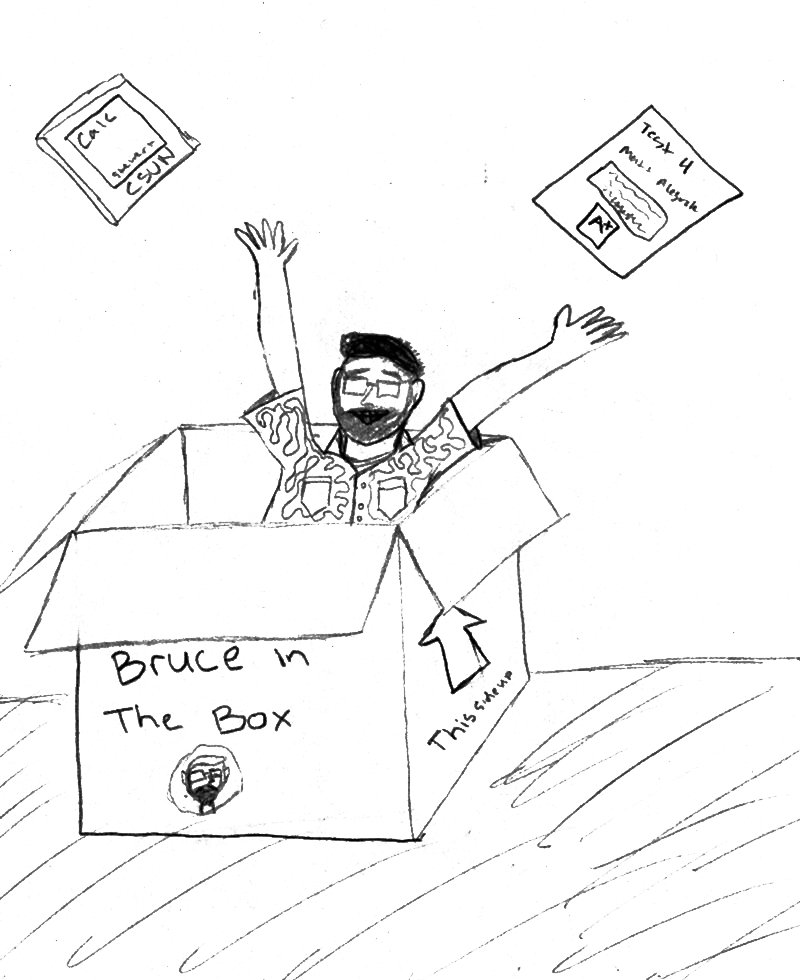 Calc
Stewart
CSUN
Test 4
Algebra
A+
Bruce in
The Box
This side up